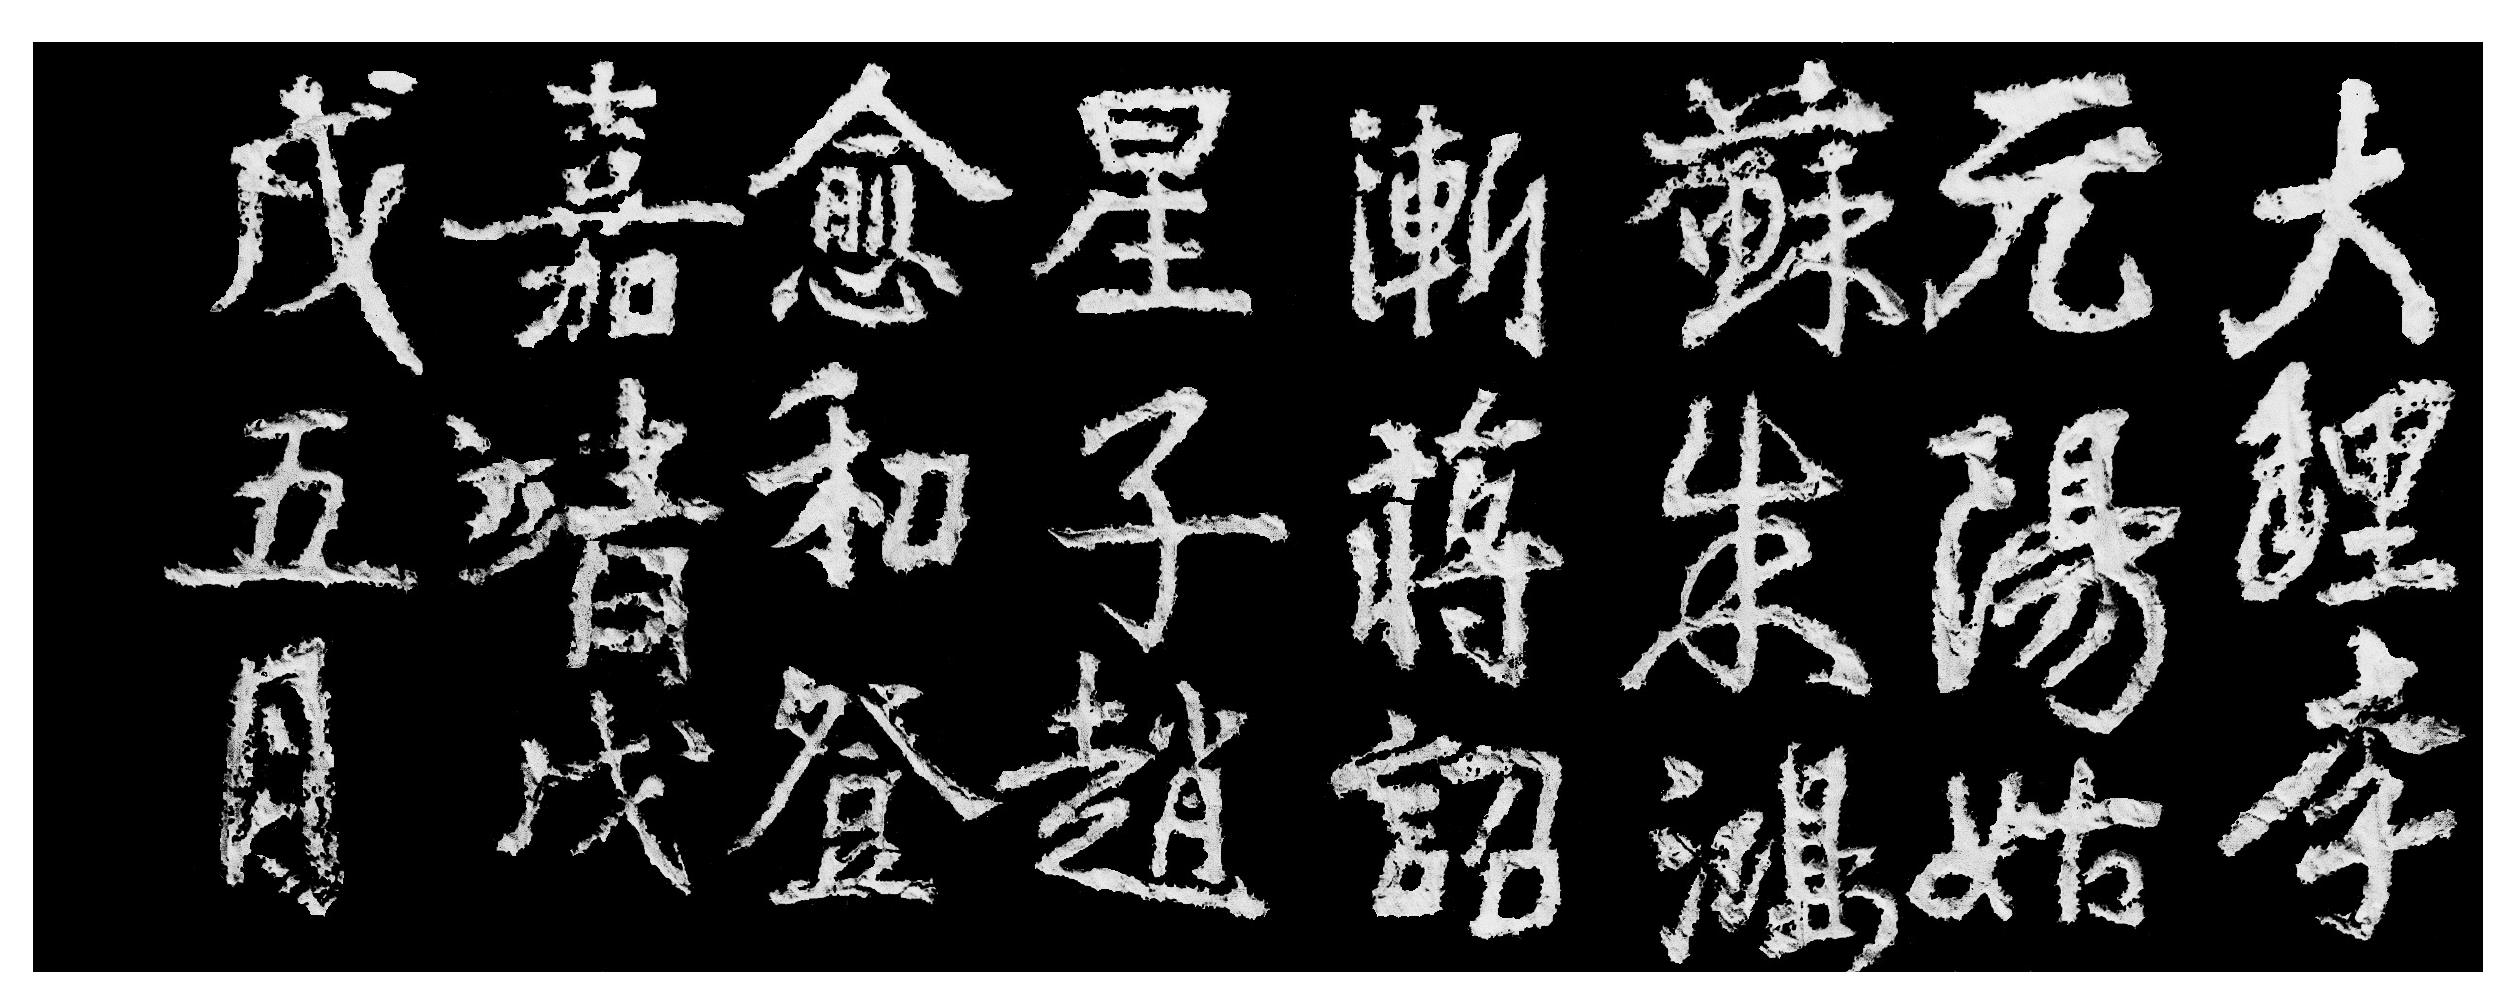 大理李
元陽姑
蘇朱鴻
漸蔣詔
星子趙
愈和登
嘉靖戊
戌五月